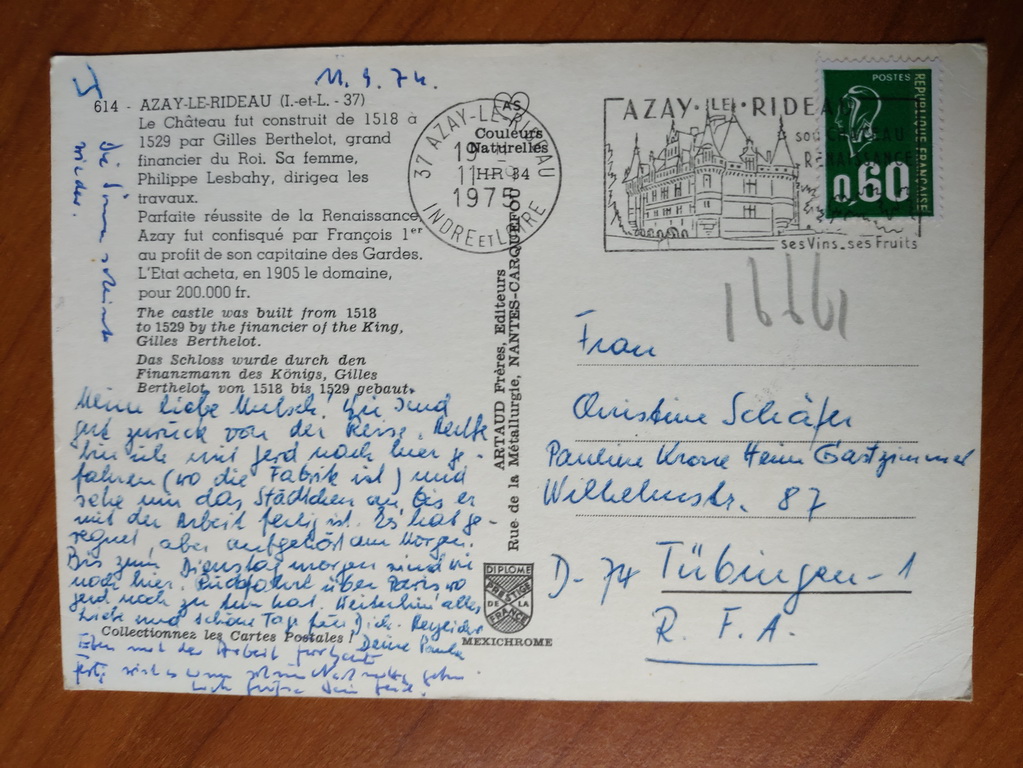 614 - AZAY-LE-RIDEAU (I.-et-L. - 37)
Le Château fut construit de 1518 à
1529 par Gilles Berthelot, grand
financier du Roi. Sa femme,
Philippe Lesbahy, dirigea les
travaux.
Parfaite réussite de la Renaissance,
Azay fut confisqué par François 1er
au profit de son capitaine des Gardes.
L'Etat acheta, en 1905 le domaine,
pour 200.000 fr.
The castle was built from 1518
to 1529 by the financier of the King,
Gilles Berthelot.
Das Schloss wurde durch den
Finanzmann des Königs, Gilles
Berthelot, von 1518 bis 1529 gebaut.
Meine liebe Mutsch! Wir sind
gut zurück von der Reise. Heute
bin ich mit Gerd nach hier ge-
fahren (wo die Fabrik ist) und
sehe mir das Städtchen an, bis er
mit der Arbeit fertig ist. Es hat ge-
regnet, aber aufgehört am Morgen.
Bis zum Dienstag morgen sind wir
noch hier. Rückfahrt über Paris wo
Gerd noch zu tun hat. Weiterhin alles
Liebe und schöne Tage für Dich.
Deine Paula
Collectionnez les Cartes Postales !
Eben mit der Arbeit
die Sonne scheint
wieder.
AS
Couleurs
Naturelles
ARTAUD Frères, Editeurs
Rue de la Métallurgie, NANTES-CARQUEFOU
DIPLOME
PRESTIGE
DE LA
FRANCE
MEXICHROME
37 AZAY-LE-RIDEAU
11 HR
1975
INDRE ET LOIRE
AZAY·LE·RIDEAU
son CHATEAU
RENAISSANCE
ses Vins_ses Fruits
POSTES
REPUBLIQUE FRANÇAISE
0,60
Frau
Christine Schäfer
Pauline Krone Heim Gästzimmer
Wilhelmstr. 87
D-74 Tübingen-1
R. F. A.